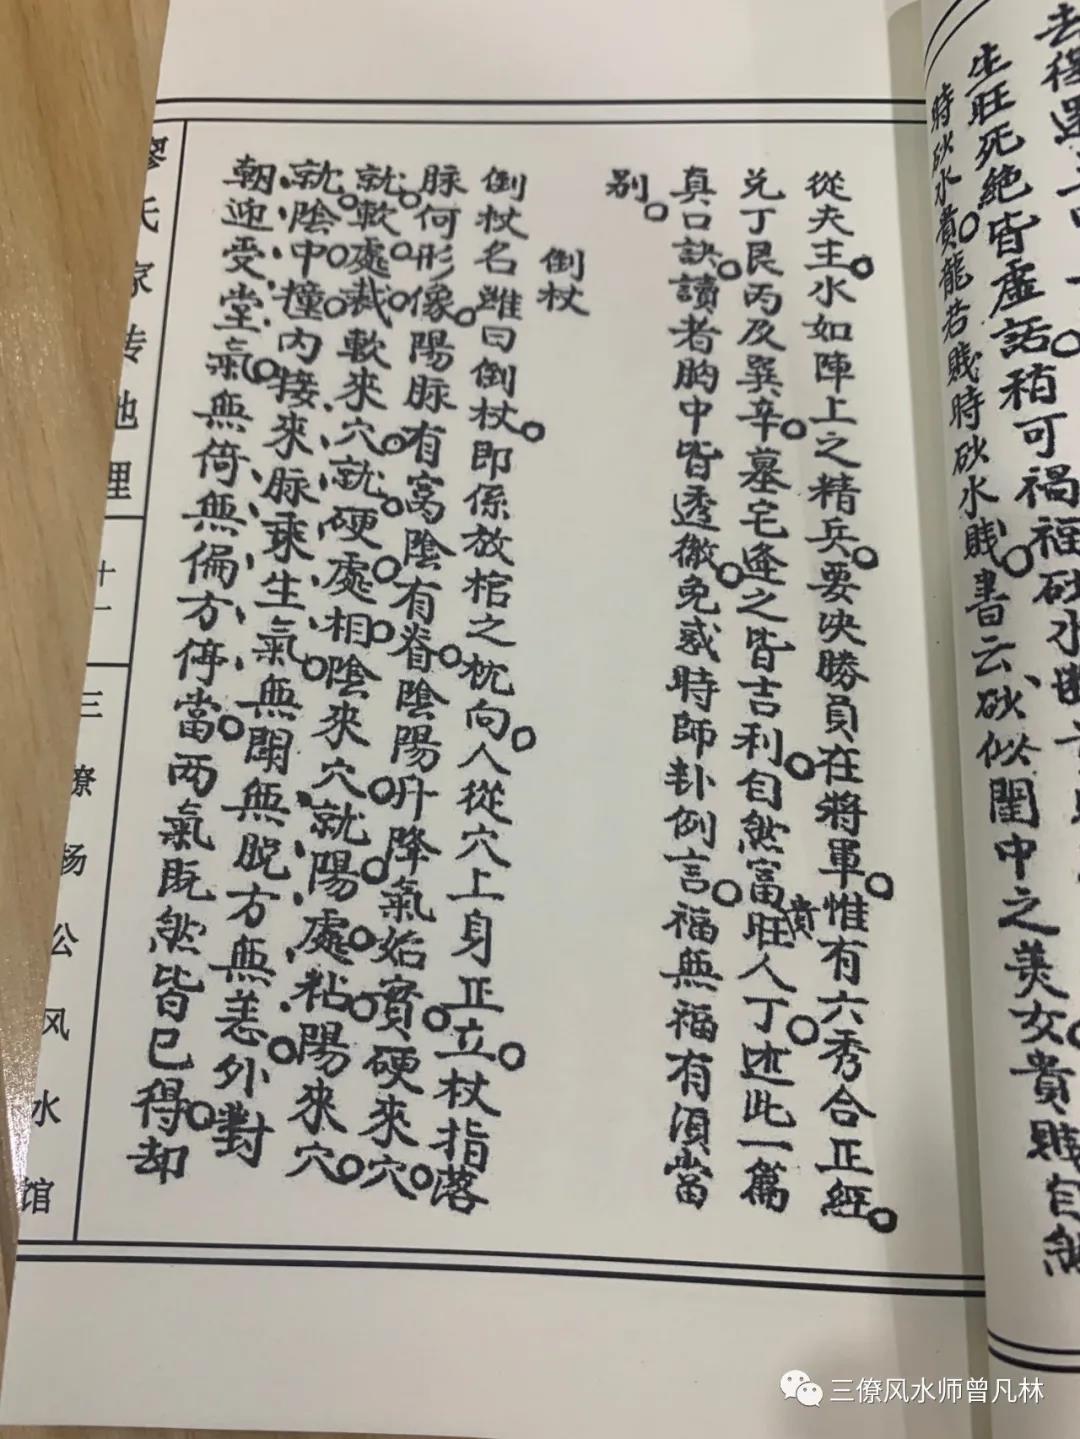 生旺死絕皆虛話稍可禍福砂水
時砂水貴龍若賤時砂水賤書云砂似閨中之美女貴賤自
從夫主水如陣上之精兵要决勝負在將軍惟有六秀合正經
兌丁艮丙及巽辛墓宅逢之皆吉利自然富貴旺人丁述此一篇
真口訣讀者胸中皆透徹免惑時師卦例言福無福有須當
别
倒杖
倒杖名雖曰倒杖即係放棺之枕向人從穴上身正立杖指落
脉何形像陽脉有窩陰有脊陰陽升降氣始實硬來穴
就軟處裁軟來穴就硬處相陰來穴就陽處粘陽來穴
就陰中撞内接來脉乘生氣無閗無脫方無恙外對
朝迎受堂氣無倚無偏方停當两氣既然皆已得却
廖氏家转地理
十一
三僚杨公风水馆
三僚风水师曾凡林